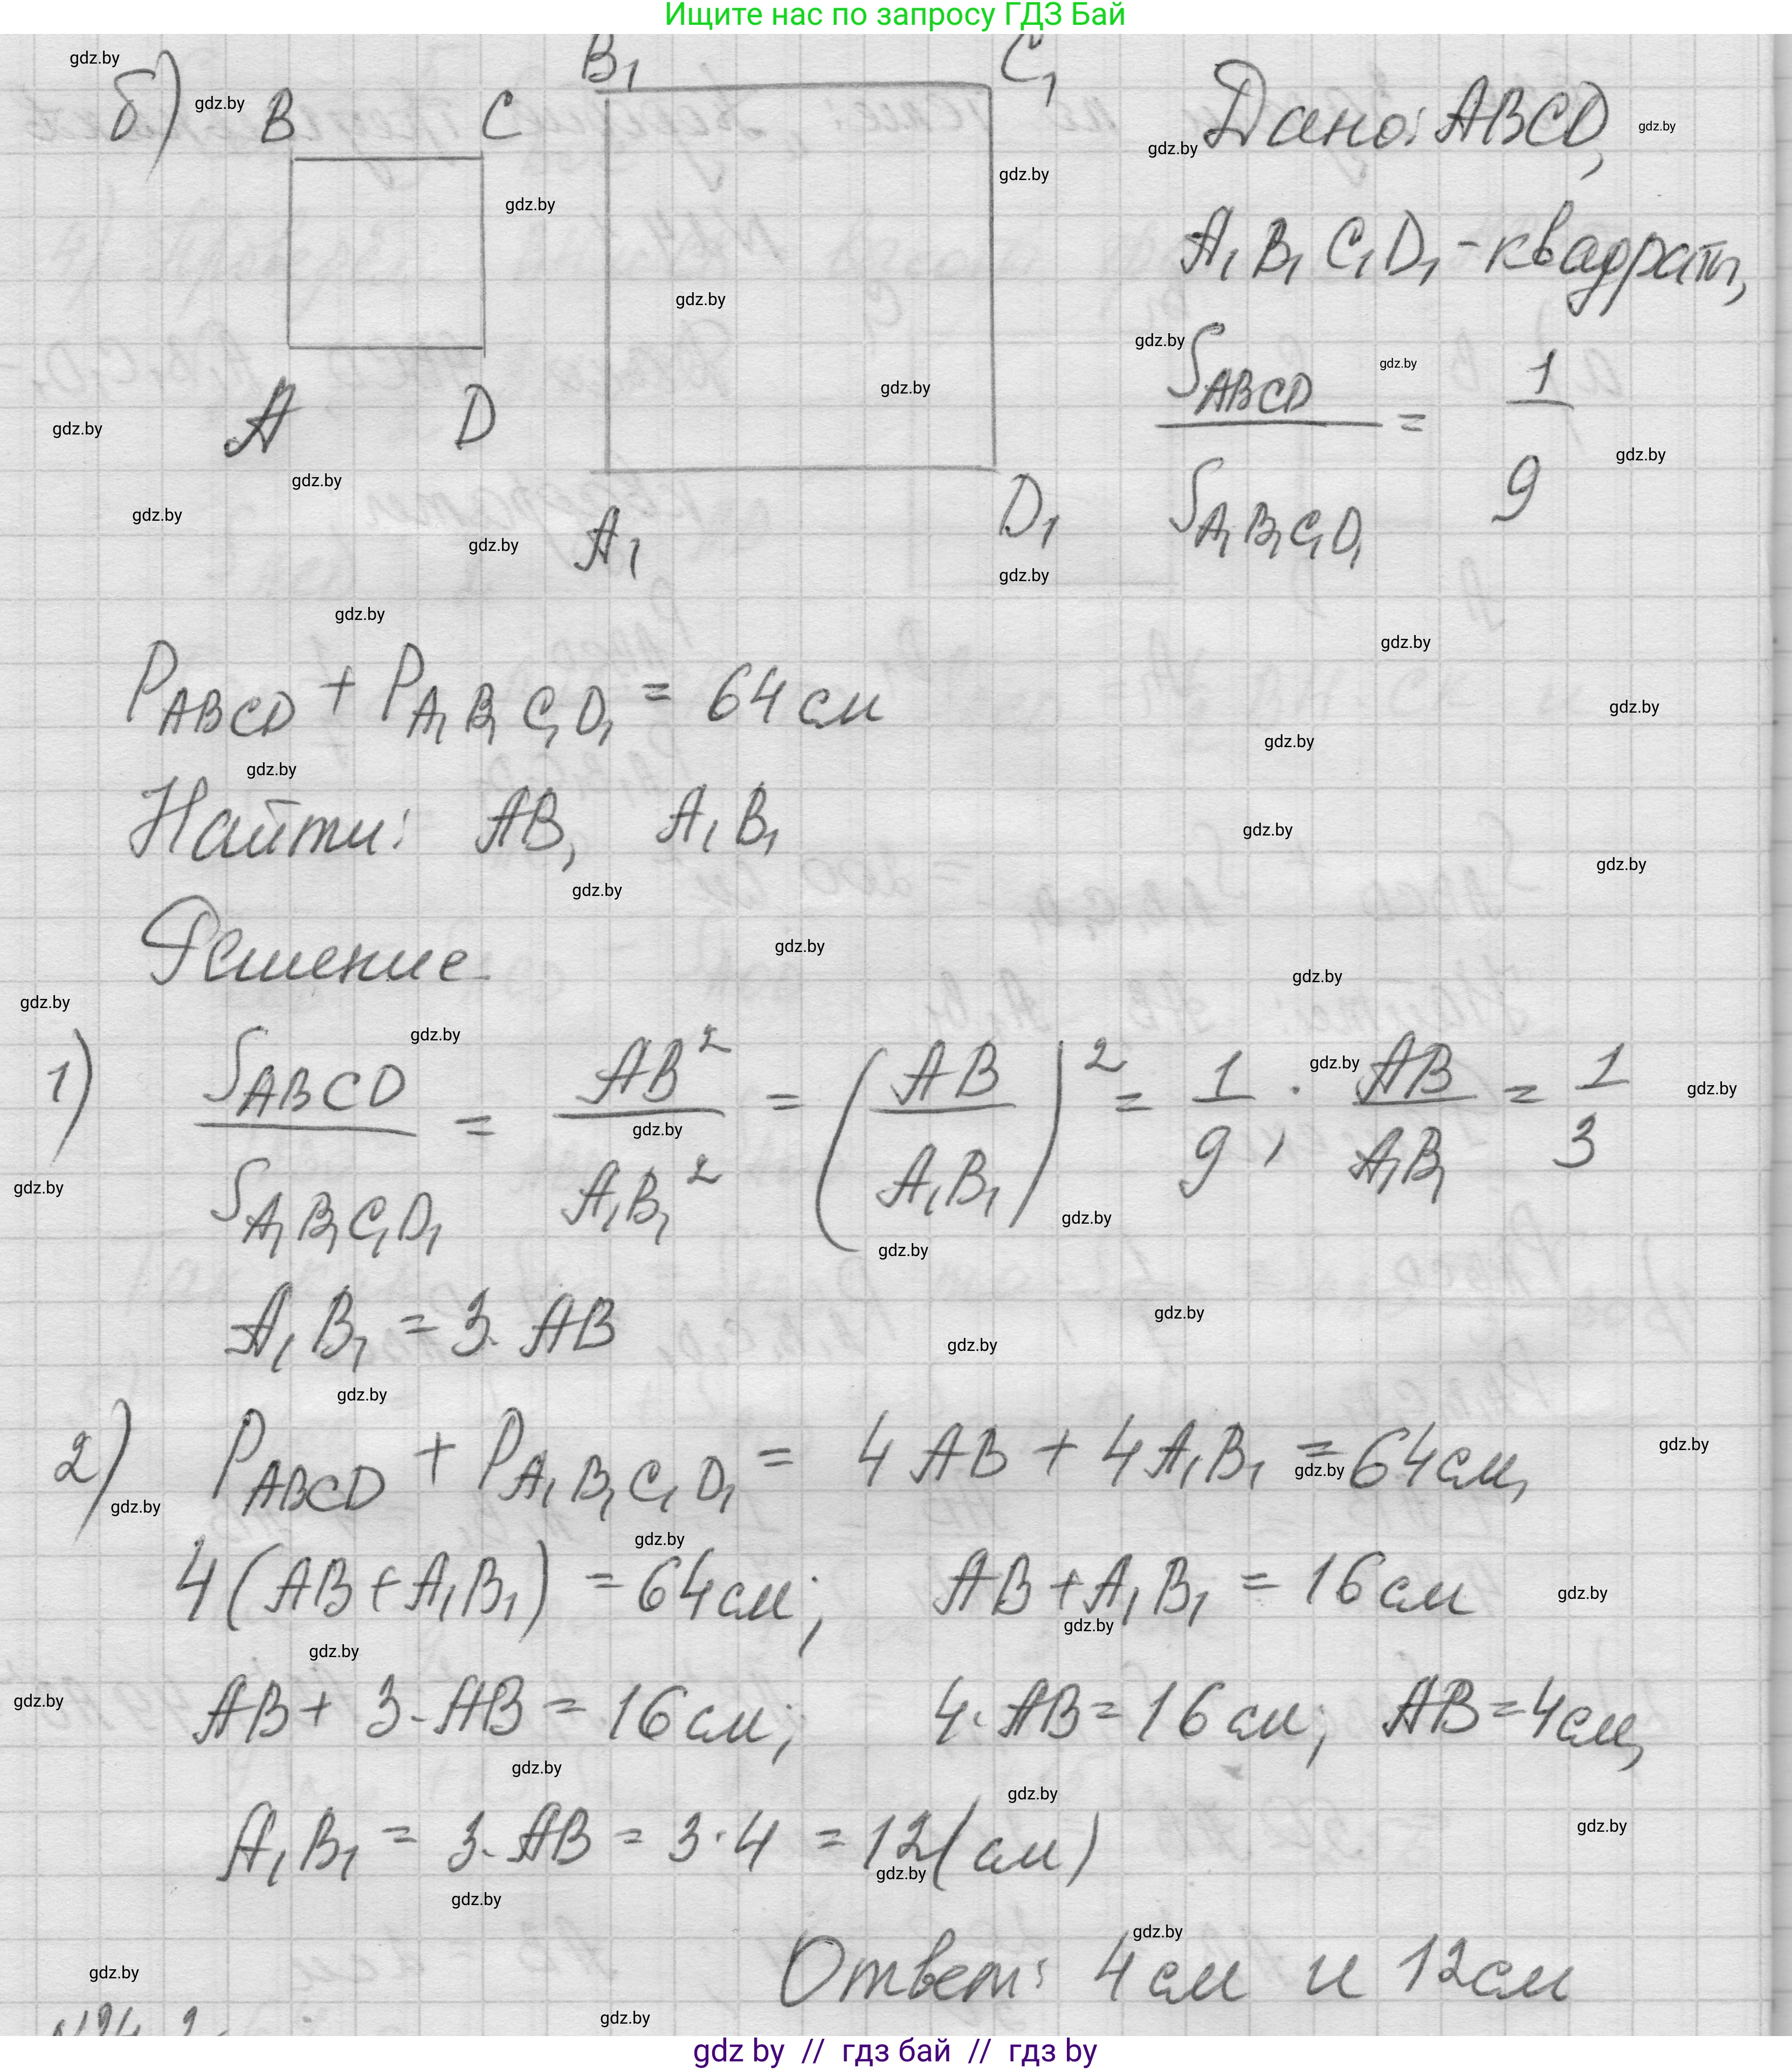 Ищите нас по запросу ГДЗ Бай
б) B C B₁ C₁ Дано: ABCD,
A₁B₁C₁D₁ - квадраты,
S_ABCD / S_A₁B₁C₁D₁ = 1/9
A D
A₁ D₁
P_ABCD + P_A₁B₁C₁D₁ = 64 см
Найти: AB, A₁B₁
Решение
1) S_ABCD / S_A₁B₁C₁D₁ = AB² / A₁B₁² = (AB / A₁B₁)² = 1/9; AB / A₁B₁ = 1/3
A₁B₁ = 3·AB
2) P_ABCD + P_A₁B₁C₁D₁ = 4AB + 4A₁B₁ = 64 см,
4(AB + A₁B₁) = 64 см; AB + A₁B₁ = 16 см
AB + 3·AB = 16 см; 4·AB = 16 см; AB = 4 см,
A₁B₁ = 3·AB = 3·4 = 12 (см)
Ответ: 4 см и 12 см
gdz by // гдз бай // гдз by